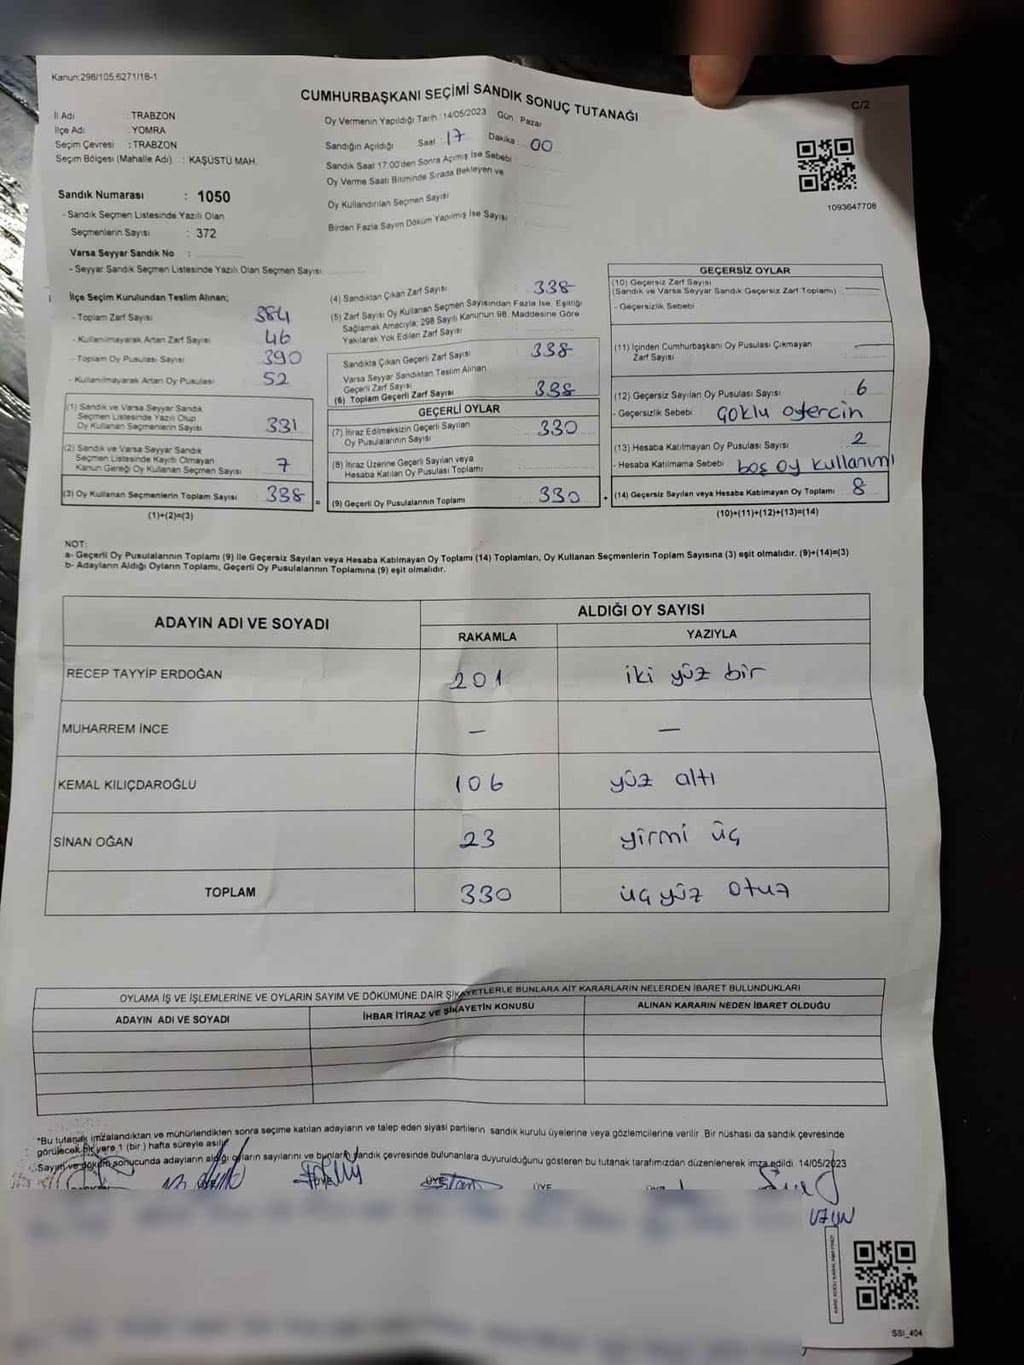 Kanun:298/105,6271/18-1
CUMHURBAŞKANI SEÇİMİ SANDIK SONUÇ TUTANAĞI
C/2
İl Adı : TRABZON
İlçe Adı : YOMRA
Seçim Çevresi : TRABZON
Seçim Bölgesi (Mahalle Adı) : KAŞÜSTÜ MAH.
Oy Vermenin Yapıldığı Tarih : 14/05/2023 Gün, Pazar
Sandığın Açıldığı Saat 17 Dakika 00
Sandık Saat 17:00'den Sonra Açımış İse Sebebi
Oy Verme Saati Bitiminde Sırada Bekleyen ve
Oy Kullandırılan Seçmen Sayısı
Birden Fazla Sayım Döküm Yapılmış İse Sayısı
1093647708
Sandık Numarası : 1050
- Sandık Seçmen Listesinde Yazılı Olan
Seçmenlerin Sayısı : 372
Varsa Seyyar Sandık No :
- Seyyar Sandık Seçmen Listesinde Yazılı Olan Seçmen Sayısı:
İlçe Seçim Kurulundan Teslim Alınan;
- Toplam Zarf Sayısı 384
- Kullanılmayarak Artan Zarf Sayısı 46
- Toplam Oy Pusulası Sayısı 390
- Kullanılmayarak Artan Oy Pusulası 52
(1) Sandık ve Varsa Seyyar Sandık
Seçmen Listesinde Yazılı Olup
Oy Kullanan Seçmenlerin Sayısı 331
(2) Sandık ve Varsa Seyyar Sandık
Seçmen Listesinde Kayıtlı Olmayan
Kanun Gereği Oy Kullanan Seçmen Sayısı 7
(3) Oy Kullanan Seçmenlerin Toplam Sayısı 338 =
(1)+(2)=(3)
(4) Sandıktan Çıkan Zarf Sayısı 338
(5) Zarf Sayısı Oy Kullanan Seçmen Sayısından Fazla İse, Eşitliği
Sağlamak Amacıyla; 298 Sayılı Kanunun 98. Maddesine Göre
Yakılarak Yok Edilen Zarf Sayısı
Sandıkta Çıkan Geçerli Zarf Sayısı 338
Varsa Seyyar Sandıktan Teslim Alınan
Geçerli Zarf Sayısı
(6) Toplam Geçerli Zarf Sayısı 338
GEÇERLİ OYLAR
(7) İtiraz Edilmeksizin Geçerli Sayılan
Oy Pusulalarının Sayısı 330
(8) İtiraz Üzerine Geçerli Sayılan veya
Hesaba Katılan Oy Pusulası Toplamı
(9) Geçerli Oy Pusulalarının Toplamı 330 +
GEÇERSİZ OYLAR
(10) Geçersiz Zarf Sayısı
(Sandık ve Varsa Seyyar Sandık Geçersiz Zarf Toplamı)
- Geçersizlik Sebebi
(11) İçinden Cumhurbaşkanı Oy Pusulası Çıkmayan
Zarf Sayısı
(12) Geçersiz Sayılan Oy Pusulası Sayısı 6
- Geçersizlik Sebebi
(13) Hesaba Katılmayan Oy Pusulası Sayısı 2
- Hesaba Katılmama Sebebi boş oy kullanımı
(14) Geçersiz Sayılan veya Hesaba Katılmayan Oy Toplamı 8
(10)+(11)+(12)+(13)=(14)
NOT:
a- Geçerli Oy Pusulalarının Toplamı (9) ile Geçersiz Sayılan veya Hesaba Katılmayan Oy Toplamı (14) Toplamları, Oy Kullanan Seçmenlerin Toplam Sayısına (3) eşit olmalıdır. (9)+(14)=(3)
b- Adayların Aldığı Oyların Toplamı, Geçerli Oy Pusulalarının Toplamına (9) eşit olmalıdır.
ADAYIN ADI VE SOYADI
ALDIĞI OY SAYISI
RAKAMLA YAZIYLA
RECEP TAYYİP ERDOĞAN 201 iki yüz bir
MUHARREM İNCE — —
KEMAL KILIÇDAROĞLU 106 yüz altı
SİNAN OĞAN 23 yirmi üç
TOPLAM 330 üç yüz otuz
OYLAMA İŞ VE İŞLEMLERİNE VE OYLARIN SAYIM VE DÖKÜMÜNE DAİR ŞİKAYETLERLE BUNLARA AİT KARARLARIN NELERDEN İBARET BULUNDUKLARI
ADAYIN ADI VE SOYADI İHBAR İTİRAZ VE ŞİKAYETİN KONUSU ALINAN KARARIN NEDEN İBARET OLDUĞU
*Bu tutanak imzalandıktan ve mühürlendikten sonra seçime katılan adayların ve talep eden siyasi partilerin sandık kurulu üyelerine veya gözlemcilerine verilir. Bir nüshası da sandık çevresinde
görülecek bir yere 1 (bir) hafta süreyle asılır.
Sayım ve döküm sonucunda adayların aldığı oyların sayılarını ve bunların sandık çevresinde bulunanlara duyurulduğunu gösteren bu tutanak tarafımızdan düzenlenerek imza edildi. 14/05/2023
ÜYE ÜYE ÜYE
SSI_404